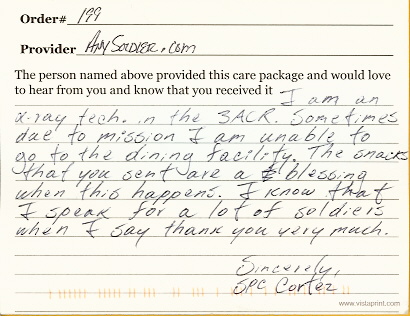 Order# 199
Provider AnySoldier.com
The person named above provided this care package and would love
to hear from you and know that you received it I am an
x-ray tech. in the 3ACR. Sometimes
due to mission I am unable to
go to the dining facility. The snacks
that you sent are a blessing
when this happens. I know that
I speak for a lot of soldiers
when I say thank you very much.
Sincerely,
SPC Cortez
www.vistaprint.com